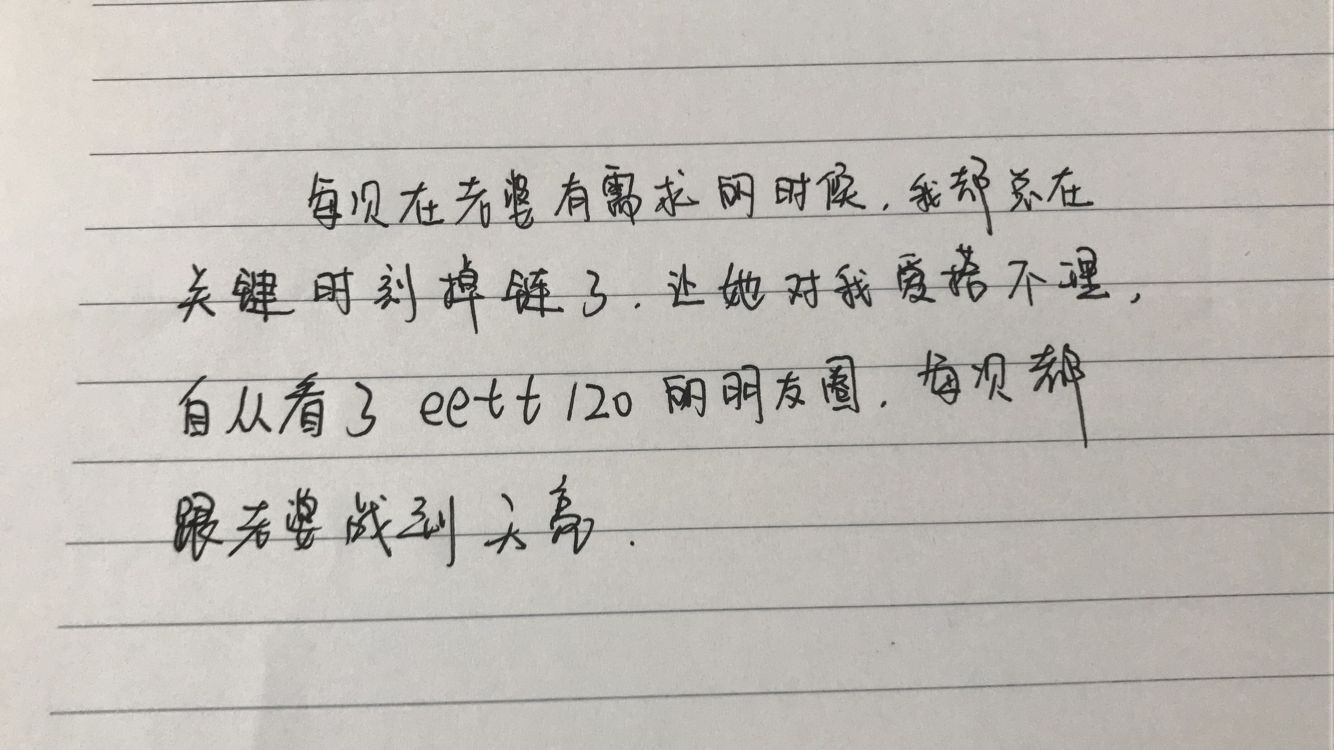 每次在老婆有需求的时候,我却总在
关键时刻掉链了.让她对我爱搭不理,
自从看了eett120的朋友圈.每次都
跟老婆战到天亮.